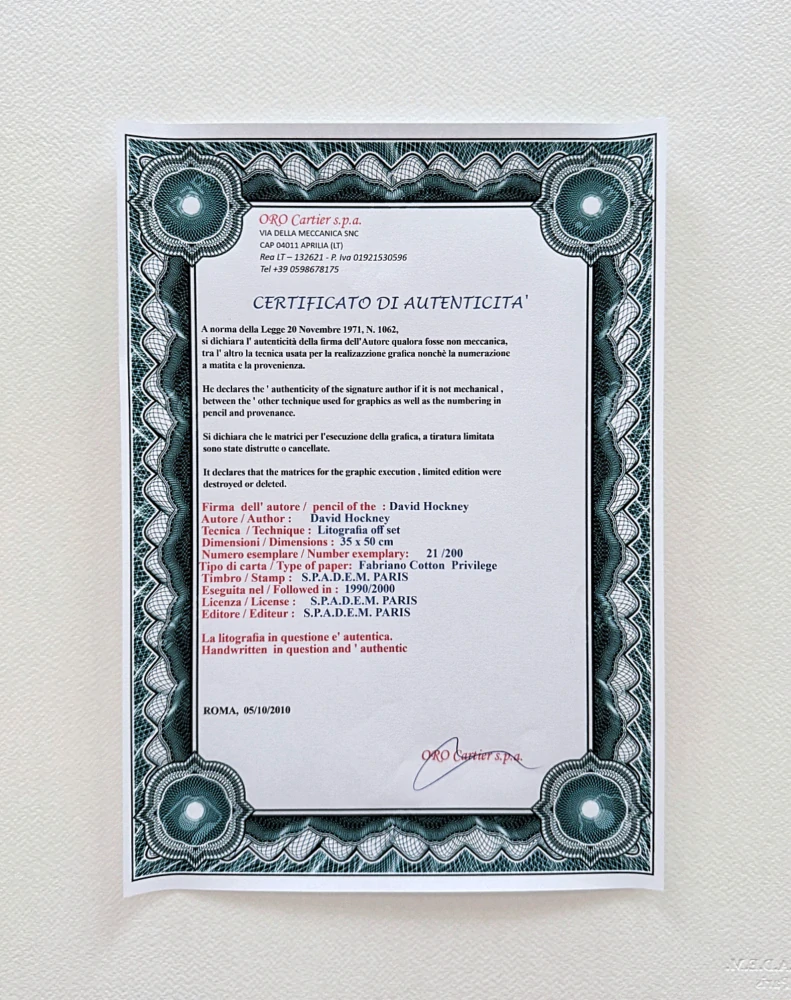 ORO Cartier s.p.a.
VIA DELLA MECCANICA SNC
CAP 04011 APRILIA (LT)
Rea LT – 132621 - P. Iva 01921530596
Tel +39 0598678175
CERTIFICATO DI AUTENTICITA'
A norma della Legge 20 Novembre 1971, N. 1062,
si dichiara l' autenticità della firma dell'Autore qualora fosse non meccanica,
tra l' altro la tecnica usata per la realizazzione grafica nonchè la numerazione
a matita e la provenienza.
He declares the ' authenticity of the signature author if it is not mechanical ,
between the ' other technique used for graphics as well as the numbering in
pencil and provenance.
Si dichiara che le matrici per l'esecuzione della grafica, a tiratura limitata
sono state distrutte o cancellate.
It declares that the matrices for the graphic execution , limited edition were
destroyed or deleted.
Firma dell' autore / pencil of the : David Hockney
Autore / Author : David Hockney
Tecnica / Technique : Litografia off set
Dimensioni / Dimensions : 35 x 50 cm
Numero esemplare / Number exemplary: 21 /200
Tipo di carta / Type of paper: Fabriano Cotton Privilege
Timbro / Stamp : S.P.A.D.E.M. PARIS
Eseguita nel / Followed in : 1990/2000
Licenza / License : S.P.A.D.E.M. PARIS
Editore / Editeur : S.P.A.D.E.M. PARIS
La litografia in questione e' autentica.
Handwritten in question and ' authentic
ROMA, 05/10/2010
ORO Cartier s.p.a.